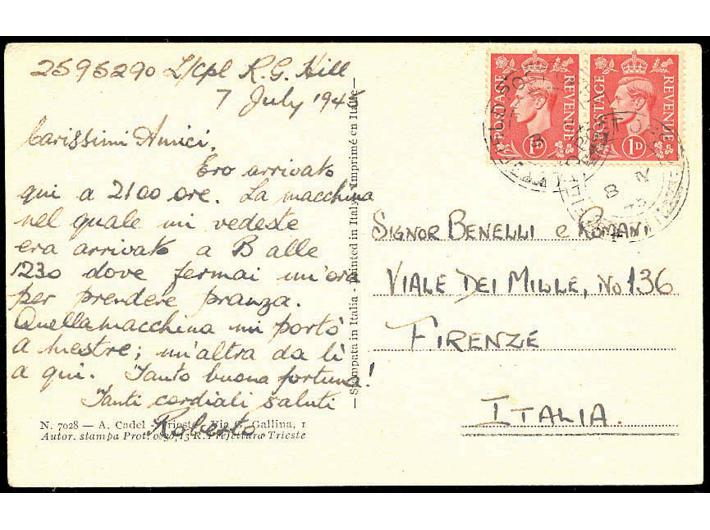 2595290 L/Cpl R.G. Hill
7 July 194
Carissimi Amici,
Ero arrivato
qui a 2100 ore. La macchina
nel quale mi vedeste
era arrivato a B alle
1230 dove fermai un'ora
per prendere pranza.
Quella macchina mi portò
a mestre; un'altra da lì
a qui. Tanto buona fortuna!
Tanti cordiali saluti
Roberto
N. 7028 — A. Cadel - Trieste - Via G. Gallina, 1
Autor. stampa Prot. 13 R. Prefettura Trieste
— Stampata in Italia - Printed in Italy - Imprimé en Italie —
POSTAGE REVENUE
1D
POSTAGE REVENUE
1D
SIGNOR BENELLI e ROMANI
VIALE DEI MILLE, No 136
FIRENZE
ITALIA.